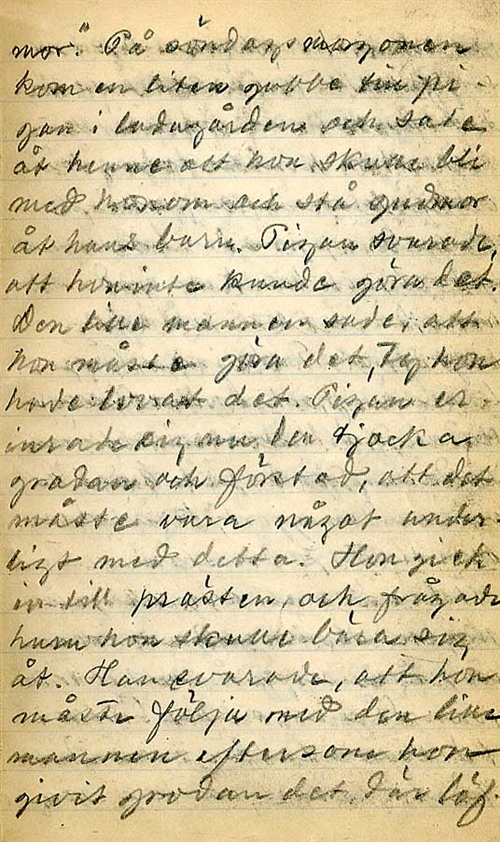 mor." På söndagsmorgonen
kom en liten gubbe till pi-
gan i ladugården och sade
åt henne att hon skulle bli
med honom och stå gudmor
åt hans barn. Pigan svarade,
att hon inte kunde göra det.
Den lille mannen sade, att
hon måste göra det, ty hon
hade lovat det. Pigan er-
inrade sig nu den tjocka
grodan och förstod, att det
måste vara något under-
ligt med detta. Hon gick
in till prästen, och frågade
huru hon skulle bära sig
åt. Han svarade, att hon
måste följa med den lille
mannen eftersom hon
givit grodan det där löf-